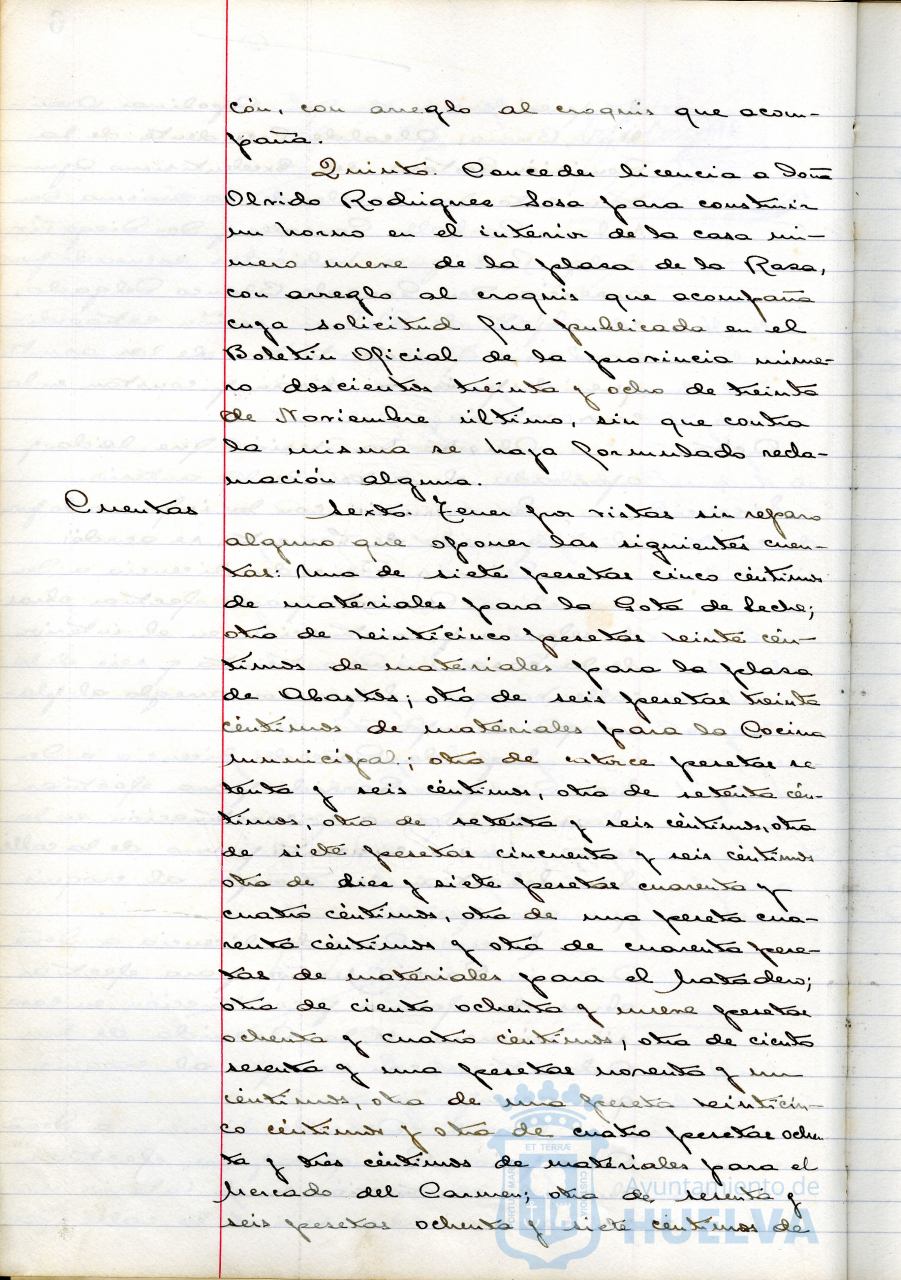 ción, con arreglo al croquis que acom-
paña.
Quinto. Conceder licencia a Doña
Olvido Rodriguez Sosa para construir
un horno en el interior de la casa nú-
mero nueve de la plaza de la Raza,
con arreglo al croquis que acompaña
cuya solicitud fue publicada en el
Boletín Oficial de la provincia núme-
ro doscientos treinta y ocho de treinta
de Noviembre último, sin que contra
la misma se haya formulado recla-
mación alguna.
Cuentas
Sexto. Tener por vistas sin reparo
alguno que oponer las siguientes cuen-
tas: Una de siete pesetas cinco céntimos
de materiales para la Gota de Leche;
otra de veinticinco pesetas veinte cén-
timos de materiales para la plaza
de Abastos; otra de seis pesetas treinta
céntimos de materiales para la Cocina
municipal; otra de catorce pesetas se
tenta y seis céntimos, otra de setenta cén-
timos, otra de setenta y seis céntimos, otra
de siete pesetas cincuenta y seis céntimos
otra de diez y siete pesetas cuarenta y
cuatro céntimos, otra de una peseta cua-
renta céntimos y otra de cuarenta pese-
tas de materiales para el Matadero;
otra de ciento ochenta y nueve pesetas
ochenta y cuatro céntimos, otra de ciento
sesenta y una pesetas noventa y un
céntimos, otra de una peseta veinticin-
co céntimos y otra de cuatro pesetas ochen
ta y tres céntimos de materiales para el
Mercado del Carmen; otra de sesenta y
seis pesetas ochenta y siete céntimos de
ET TERRÆ
CUSTODIA
Ayuntamiento de
HUELVA